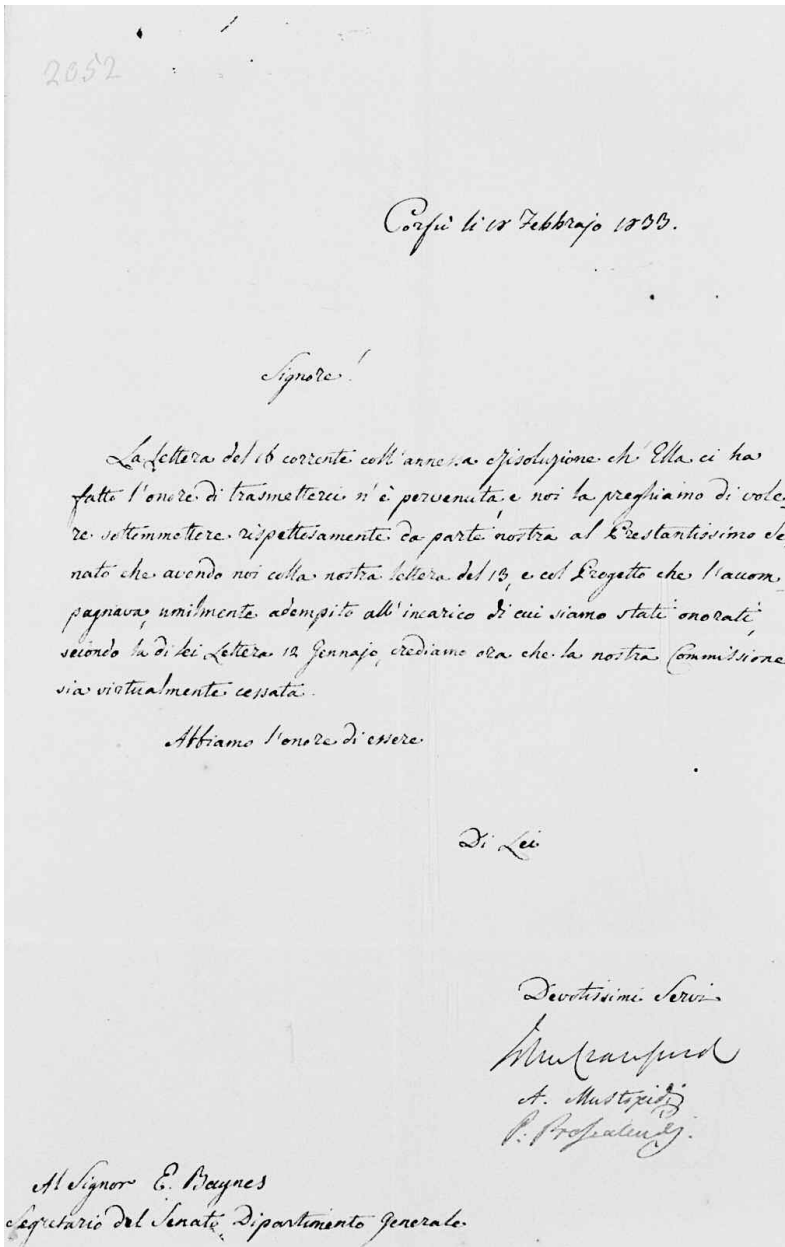 2052
Corfù li 18 Febbrajo 1833.
Signore!
La lettera del 16 corrente coll'annessa Risoluzione ch'Ella ci ha
fatto l'onore di trasmetterci n'è pervenuta, e noi la preghiamo di vole-
re sottommettere rispettosamente da parte nostra al Prestantissimo Se-
nato che avendo noi colla nostra lettera del 13, e col Progetto che l'accom-
pagnava, umilmente adempito all'incarico di cui siamo stati onorati,
secondo la di lei Lettera 12 Gennajo, crediamo ora che la nostra Commissione
sia virtualmente cessata.
Abbiamo l'onore di essere
Di Lei
Devotissimi Servi
John Craufurd
A. Mustoxidi
P. Prosalendi.
Al Signor E. Baynes
Segretario del Senato Dipartimento Generale